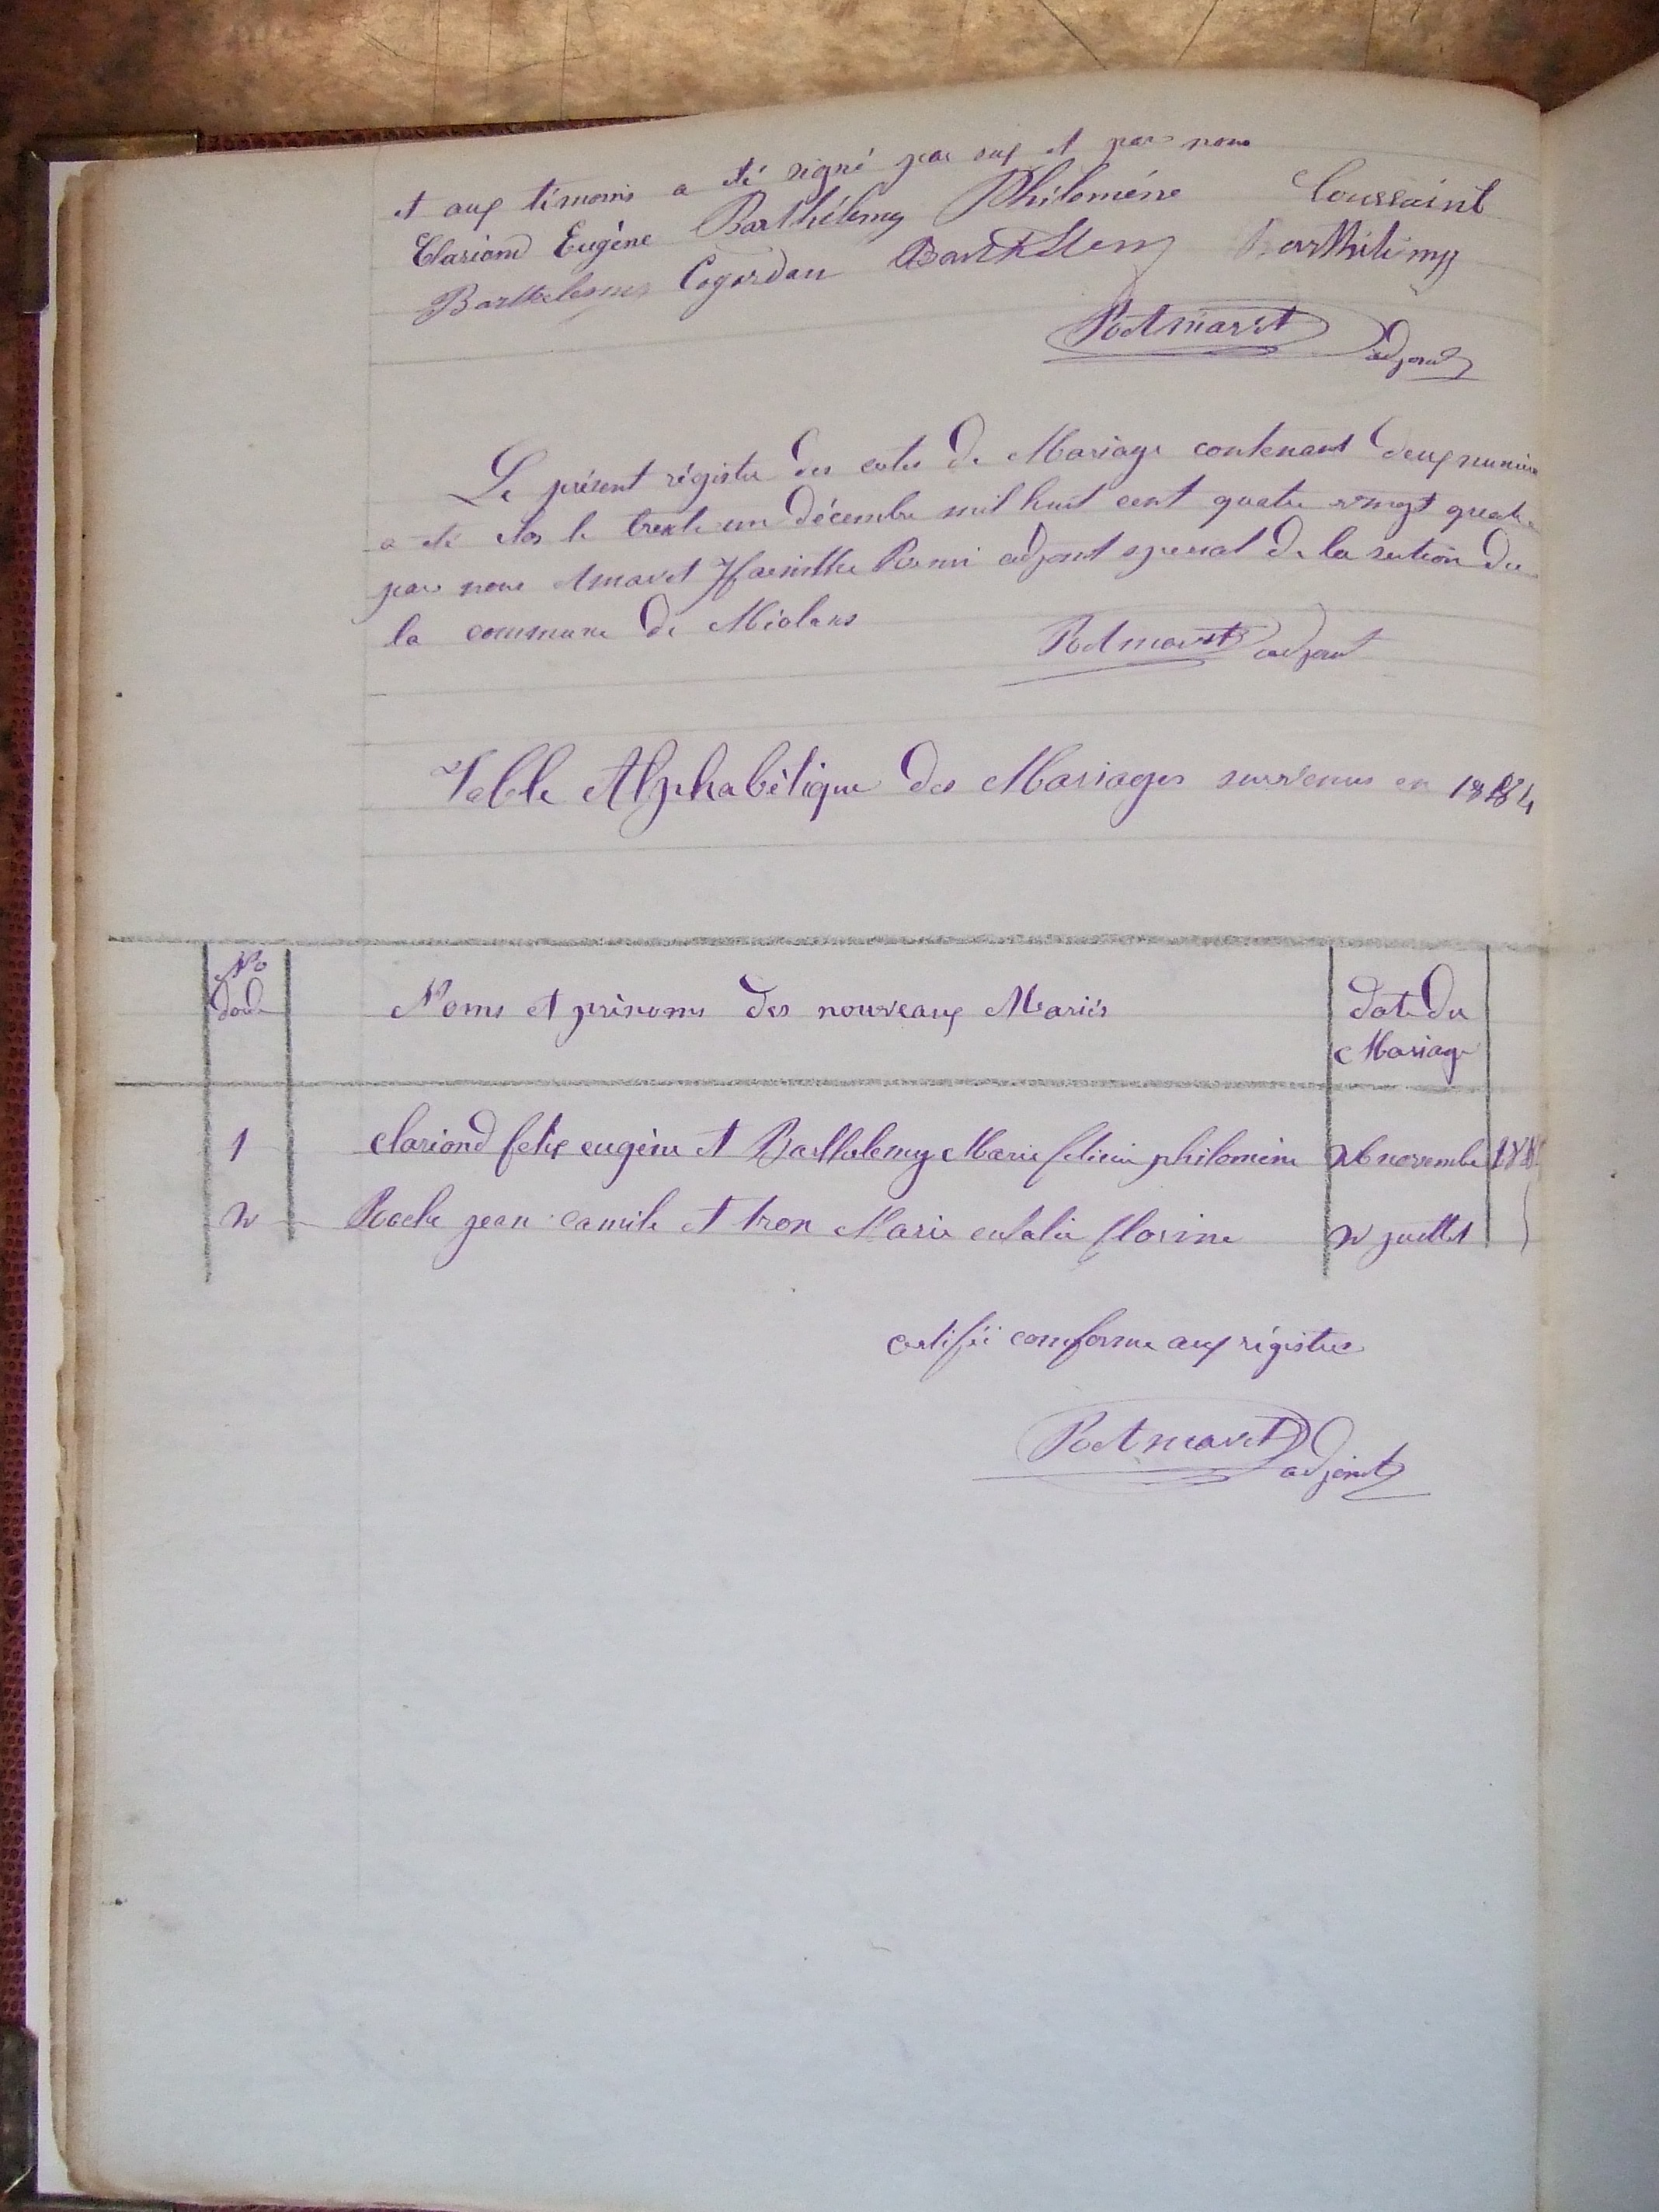 et aux témoins a été signé par eux et par nous
Clariond Eugène Barthélemy Philoméne Toussaint
Barthelemy Cogordan Barthélemy Barthélémy
adjoint
Le présent régistre des actes de Mariage contenant deux numéros
a été clos le trente un décembre mil huit cent quatre vingt quatre
par nous Amavet Hyacinthe Remi adjoint spécial de la section de
la commune de Méolans
adjoint
Table Alphabétique des Mariages survenus en 1884
No
dorde
Noms et prénoms des nouveaux Mariés
date du
Mariage
1 Clariond felix eugène et Barthelemy Marie felicie philomène 26 novembre
2 Roche jean camile et tron Marie eulalie florine 2 juillet
certifié comforme aux régistres
adjoint